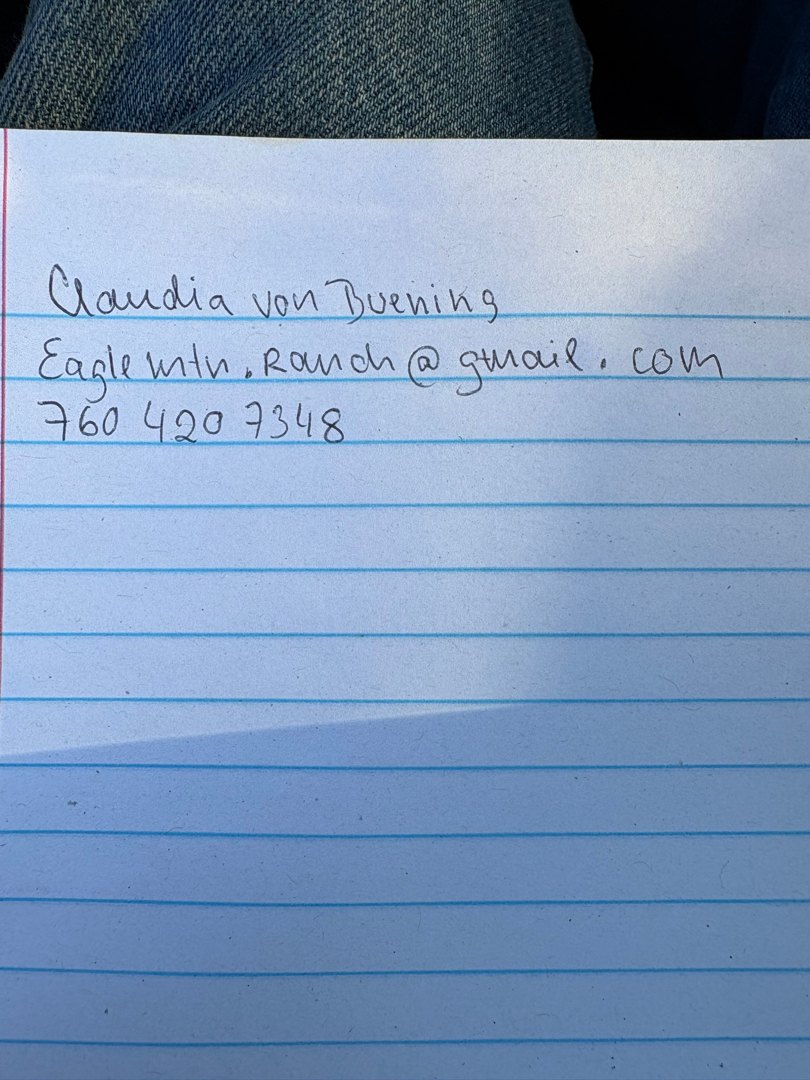 Claudia von Buening
Eaglemtn.Ranch@gmail.com
760 420 7348